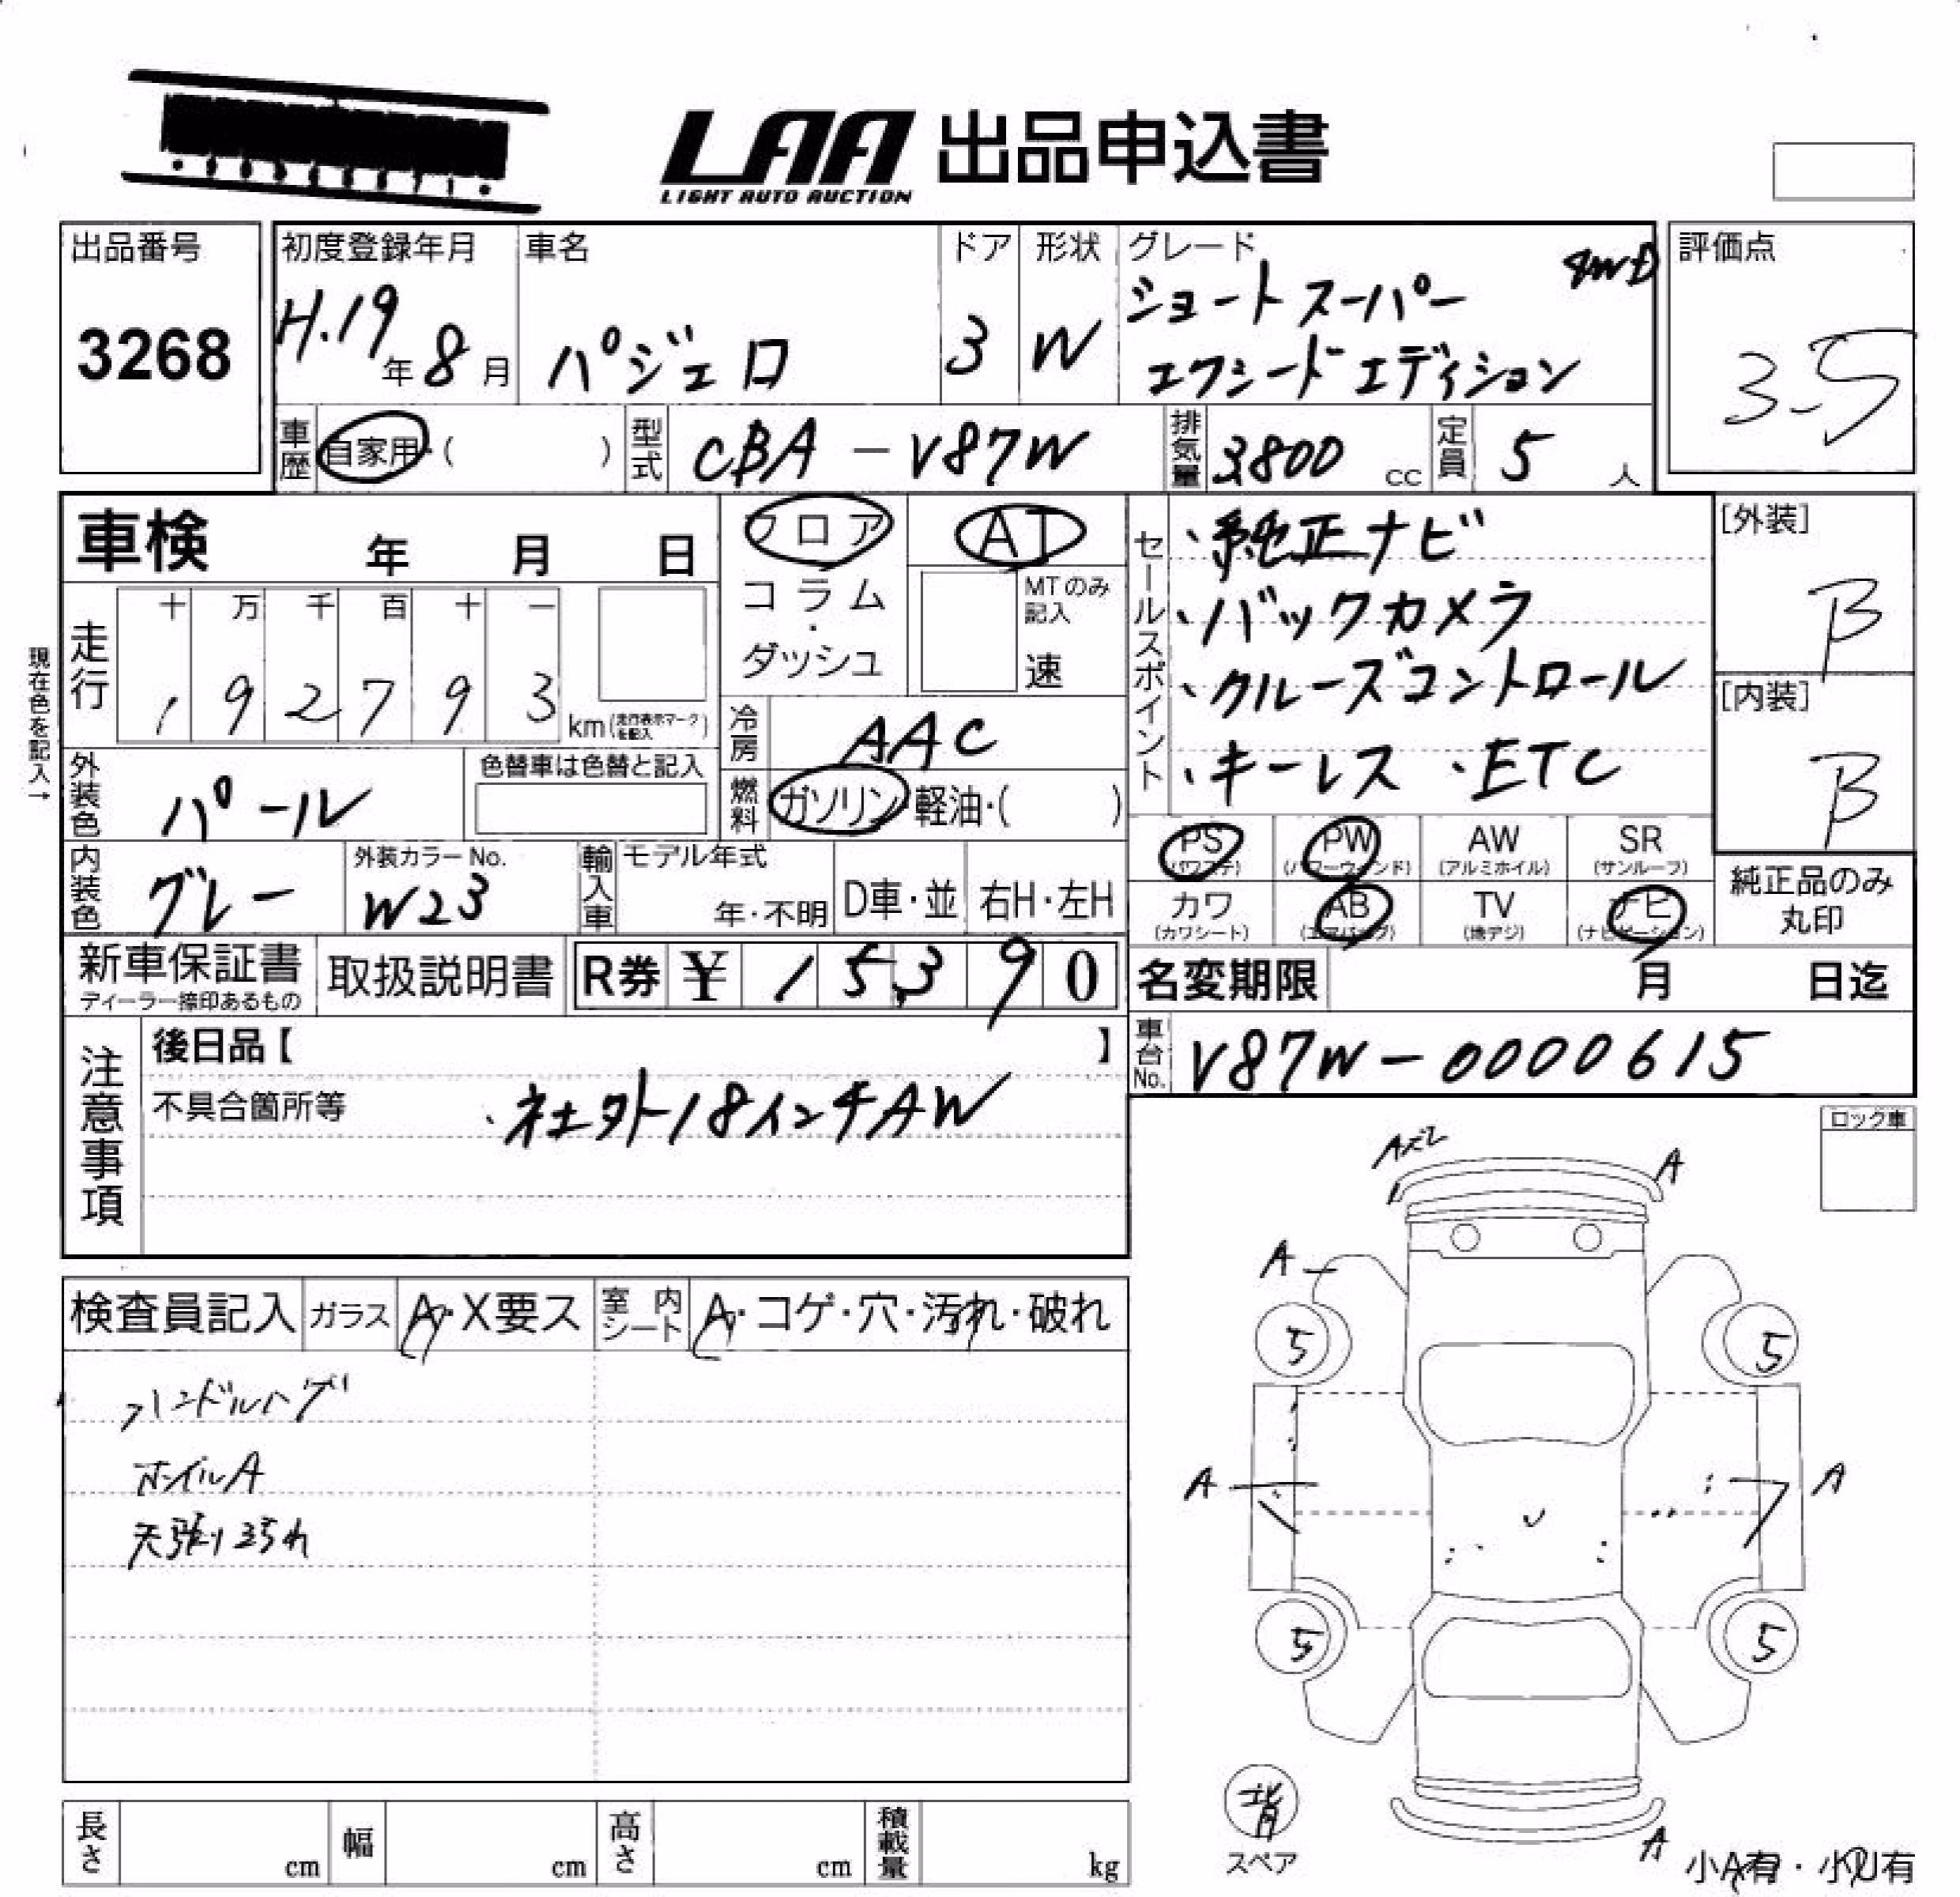 LAA 出品申込書
LIGHT AUTO AUCTION
出品番号
3268
初度登録年月
H.19年8月
車名
パジェロ
ドア
3
形状
W
グレード
ショートスーパー
エクシードエディション
評価点
3.5
車歴 自家用・( )
型式 CBA-V87W
排気量 3800 cc
定員 5 人
車検 年 月 日
フロア
コラム
・
ダッシュ
AT
MTのみ
記入
速
現在色を記入→
走行
十 万 千 百 十 一
1 9 2 7 9 3 km(走行表示マークを記入)
冷房 AAC
燃料 ガソリン・軽油・( )
外装色 パール
色替車は色替と記入
内装色 グレー
外装カラーNo.
W23
輸入車
モデル年式
年・不明
D車・並
右H・左H
セールスポイント
・純正ナビ
・バックカメラ
・クルーズコントロール
・キーレス ・ETC
[外装]
B
[内装]
B
PS
(パワステ)
PW
(パワーウィンド)
AW
(アルミホイル)
SR
(サンルーフ)
カワ
(カワシート)
AB
(エアバッグ)
TV
(地デジ)
ナビ
(ナビゲーション)
純正品のみ
丸印
新車保証書
ディーラー捺印あるもの
取扱説明書
R券 ¥ 1 5 3 9 0
名変期限 月 日迄
車台No. V87W-0000615
注意事項
後日品【 】
不具合箇所等 ・社外18インチAW
ロック車
検査員記入
ガラス A・X要ス
室内シート A・コゲ・穴・汚れ・破れ
ハンドルハゲ
ホイルA
天張り汚れ
A
A
A
A
A
5
5
5
5
背
スペア
A
小A有・小U有
長さ cm
幅 cm
高さ cm
積載量 kg